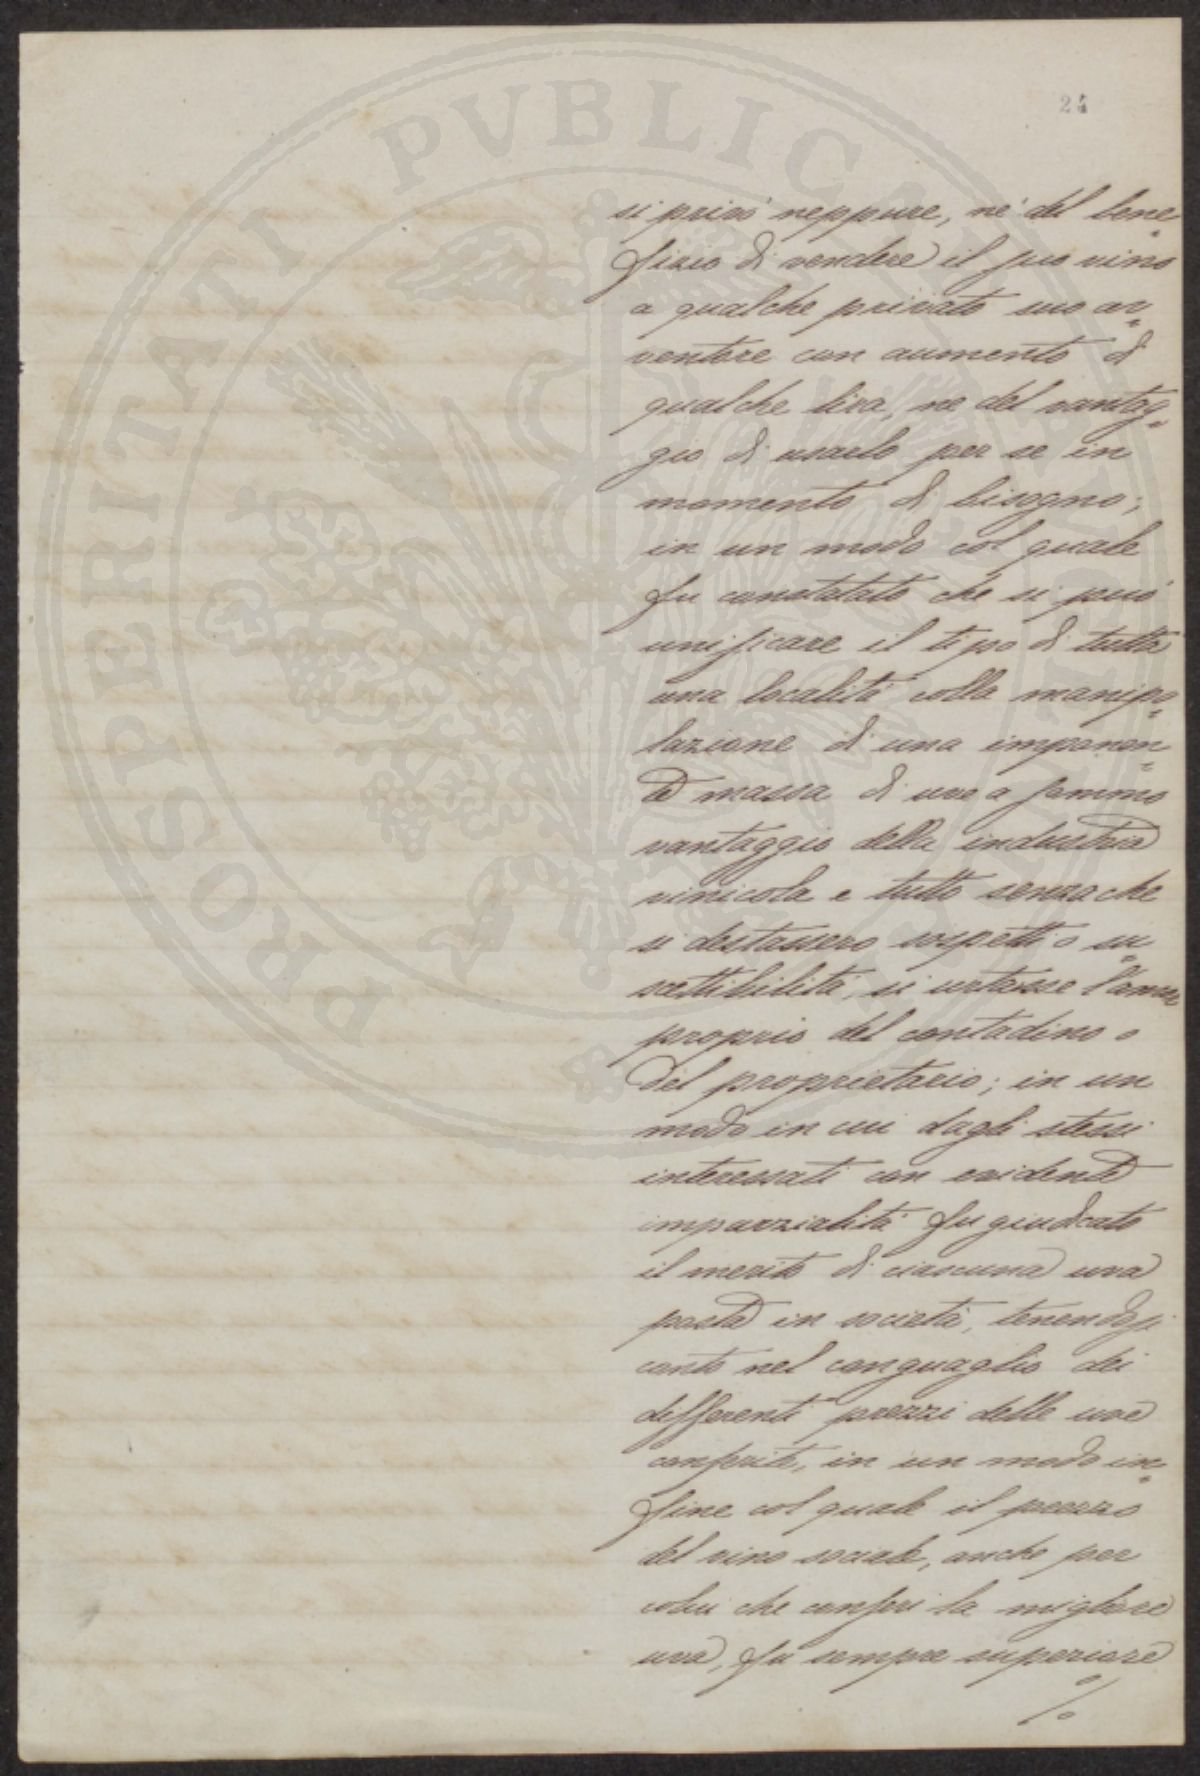 24
si privò neppure, nè del bene=
fizio di vendere il suo vino
a qualche privato suo av=
ventore con aumento di
qualche lira, ne del vantag=
gio di usarlo per se in
momento di bisogno;
in un modo col quale
fu constatato che si può
unificare il tipo di tutta
una località colla manipo=
lazione di una imponen=
te massa di uve a sommo
vantaggio della industria
vinicola e tutto senza che
si destassero sospetti o su=
scettibilità, si urtasse l'amor
proprio del contadino o
del proprietario; in un
modo in cui dagli stessi
interessati con evidente
imparzialità fu giudicato
il merito di ciascuna uva
posta in società, tenendosi
conto nel conguaglio dei
differenti prezzi delle uve
conferite, in un modo in=
fine col quale il prezzo
del vino sociale, anche per
colui che conferì la migliore
uva, fu sempre superiore
%
PROSPERITATI PUBLICAE